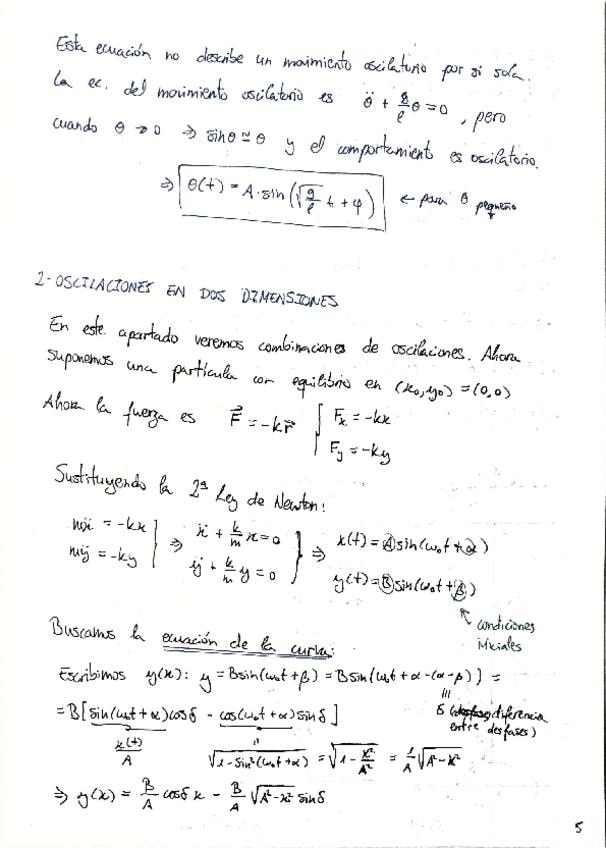 Esta ecuación no describe un movimiento oscilatorio por sí sola.
La ec. del movimiento oscilatorio es θ̈ + g/ℓ θ = 0, pero
cuando θ → 0 ⇒ sinθ ≃ θ y el comportamiento es oscilatorio.
⇒ θ(t) = A·sin(√(g/ℓ) t + φ) ← para θ pequeño
2- OSCILACIONES EN DOS DIMENSIONES
En este apartado veremos combinaciones de oscilaciones. Ahora
suponemos una partícula con equilibrio en (x₀,y₀) = (0,0)
Ahora la fuerza es F⃗ = -kr⃗ { Fx = -kx
Fy = -ky
Sustituyendo la 2ª Ley de Newton:
mẍ = -kx } ⇒ ẍ + k/m x = 0 } ⇒ x(t) = A sin(ω₀t + α)
mÿ = -ky ÿ + k/m y = 0 y(t) = B sin(ω₀t + β)
condiciones
iniciales
Buscamos la ecuación de la curva:
Escribimos y(x): y = B sin(ω₀t + β) = B sin(ω₀t + α - (α - β)) =
= B[sin(ω₀t + α)cosδ - cos(ω₀t + α)sinδ]
δ (diferencia
entre desfases)
x(t)/A √(1 - sin²(ω₀t + α)) = √(1 - x²/A²) = 1/A √(A² - x²)
⇒ y(x) = B/A cosδ x - B/A √(A² - x²) sinδ
5